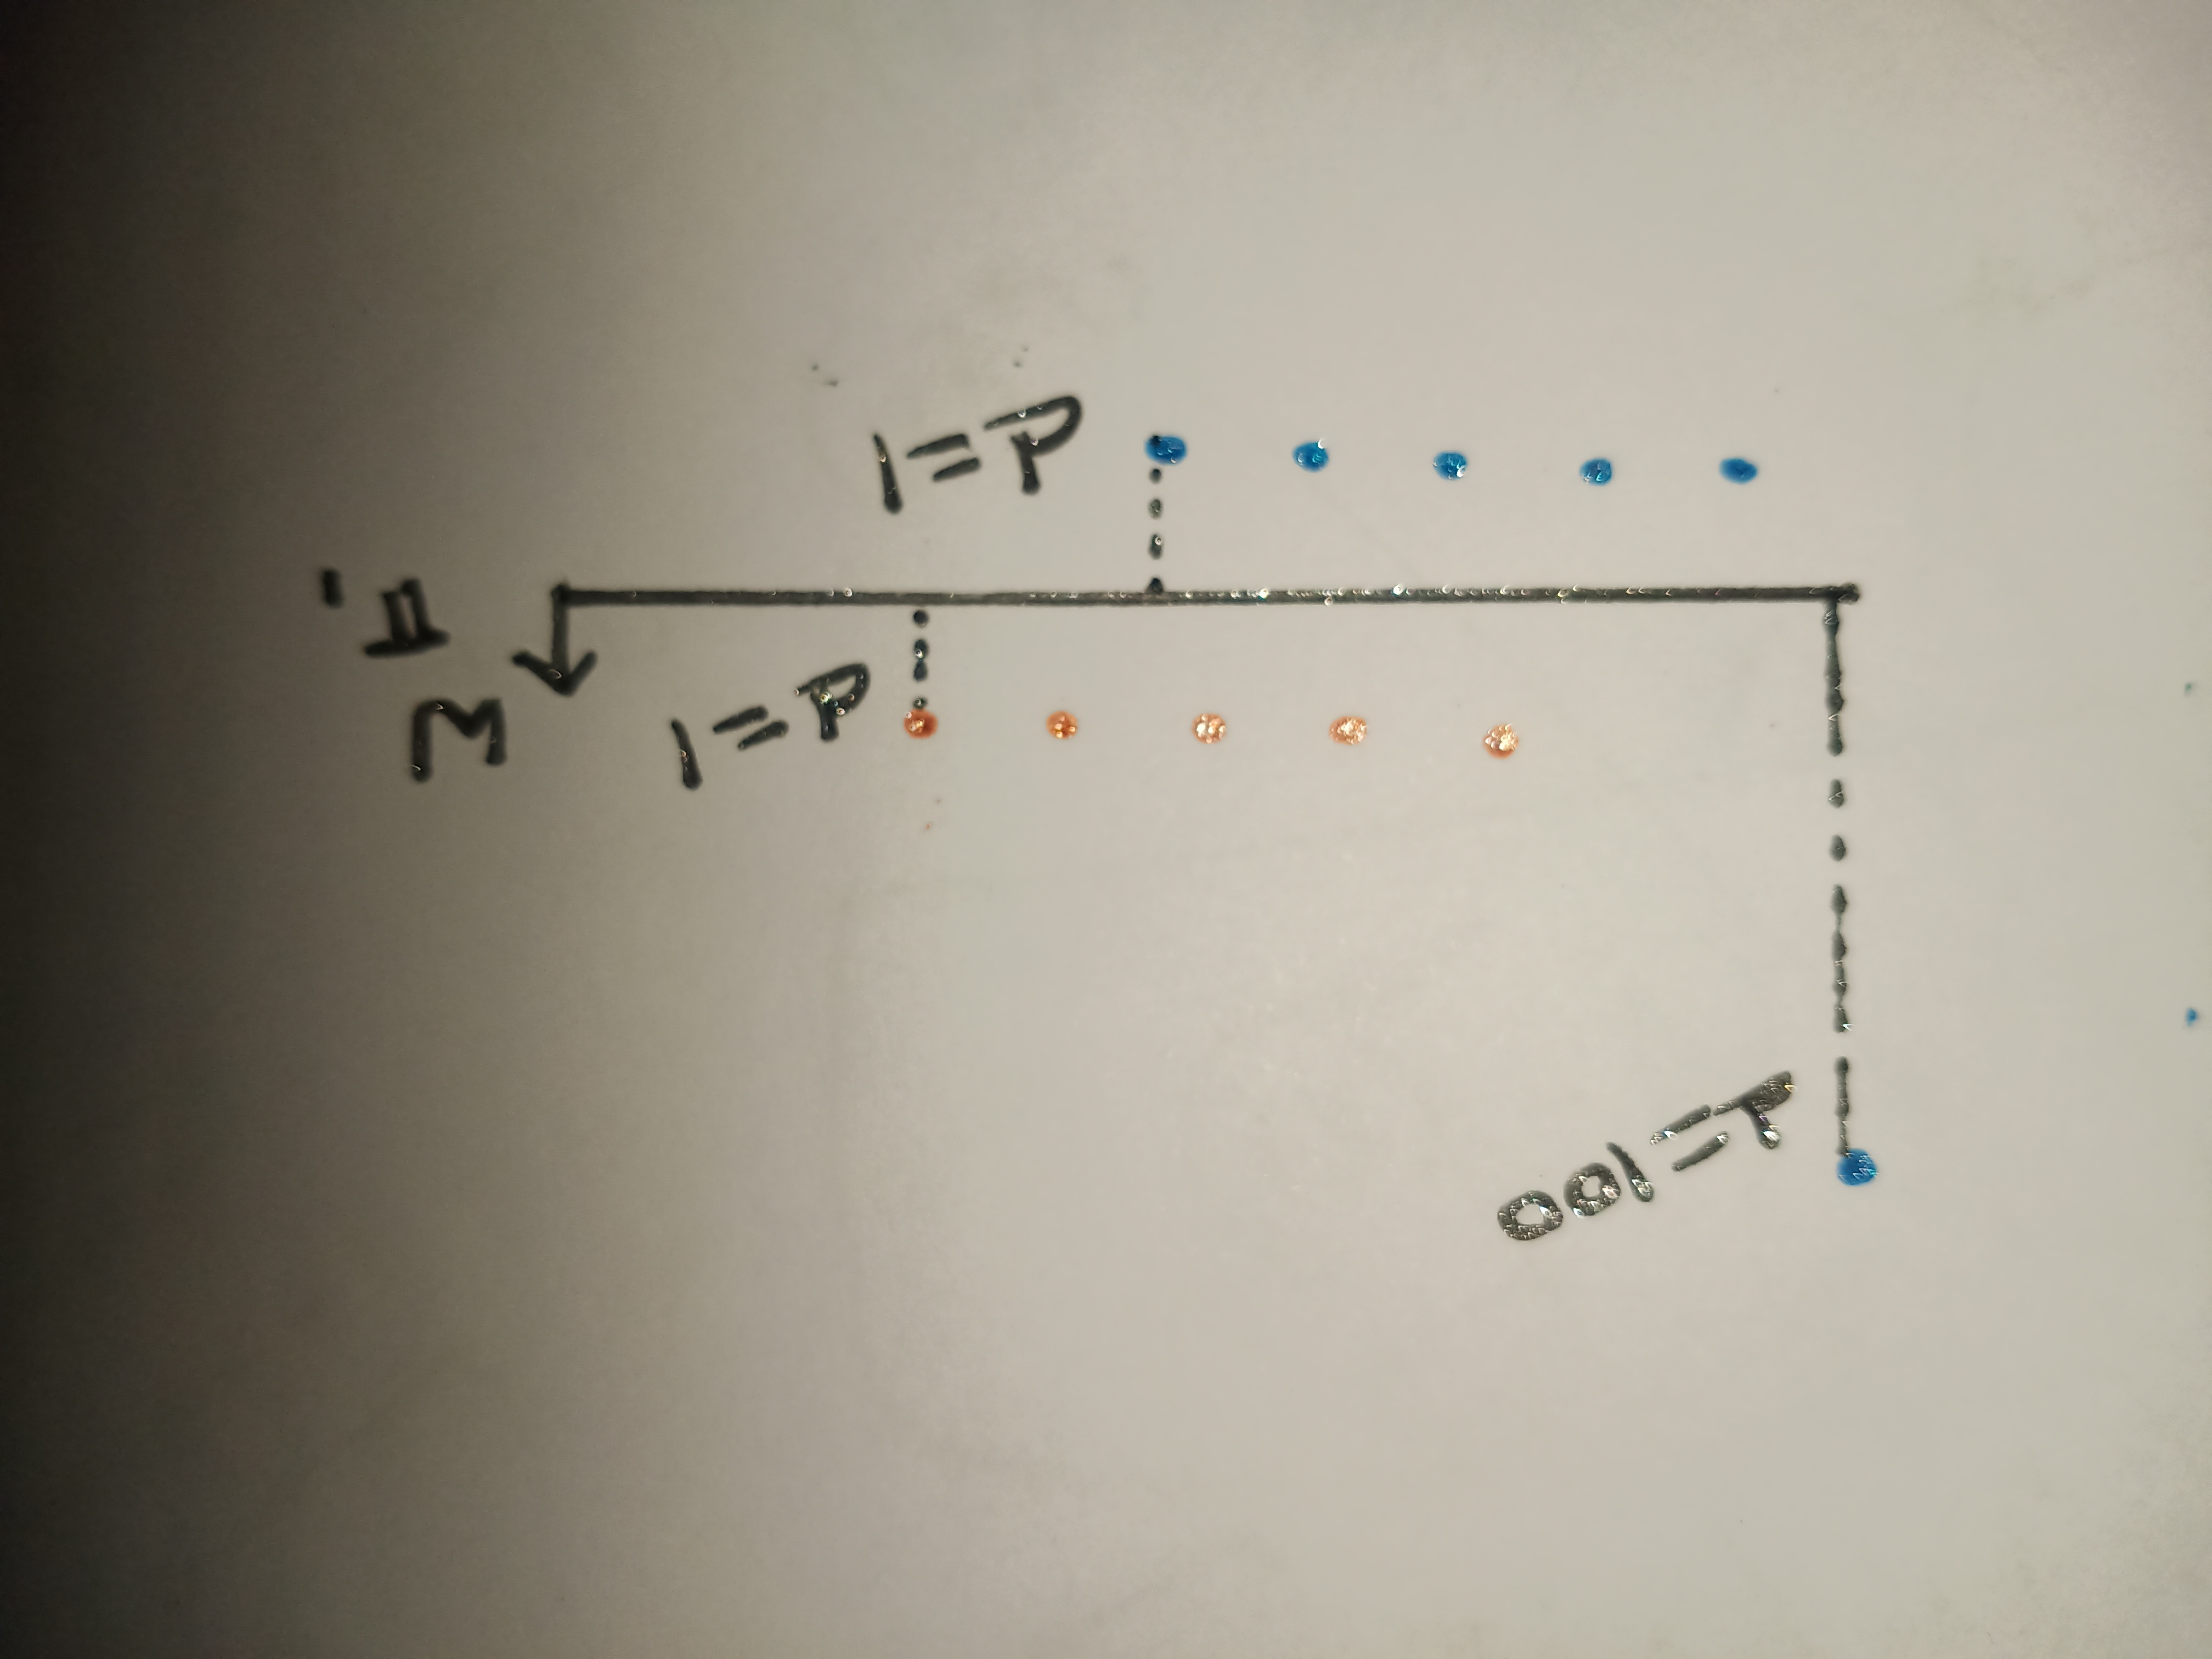 d=100
d=1
W
π1
d=1